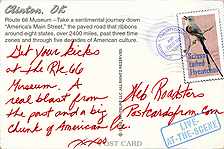 Clinton, OK
Route 66 Museum – Take a sentimental journey down
"America's Main Street," the paved road that ribbons
around eight states, over 2400 miles, past three time
zones and through five decades of American culture.
Get your kicks
at the Rte 66
Museum. A
real blast from
the past and a big
chunk of American Pie.
xoxo
Web Roadsters
Postcardsfrom.com
AT-THE-SCENE